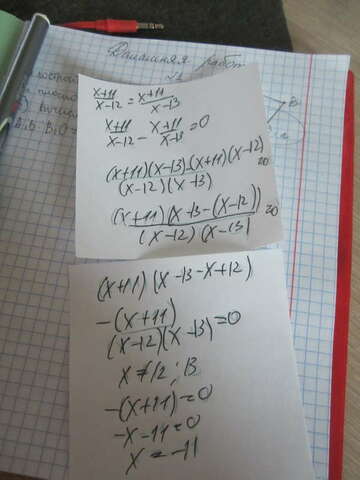 Домашняя работ
x+11/x-12 = x+11/x-13
x+11/x-12 - x+11/x-13 = 0
(x+11)(x-13)-(x+11)(x-12)/(x-12)(x-13) = 0
(x+11)(x-13-(x-12))/(x-12)(x-13) = 0
(x+11)(x-13-x+12)
-(x+11)/(x-12)(x-13) = 0
x≠12; 13
-(x+11)=0
-x-11=0
x = -11